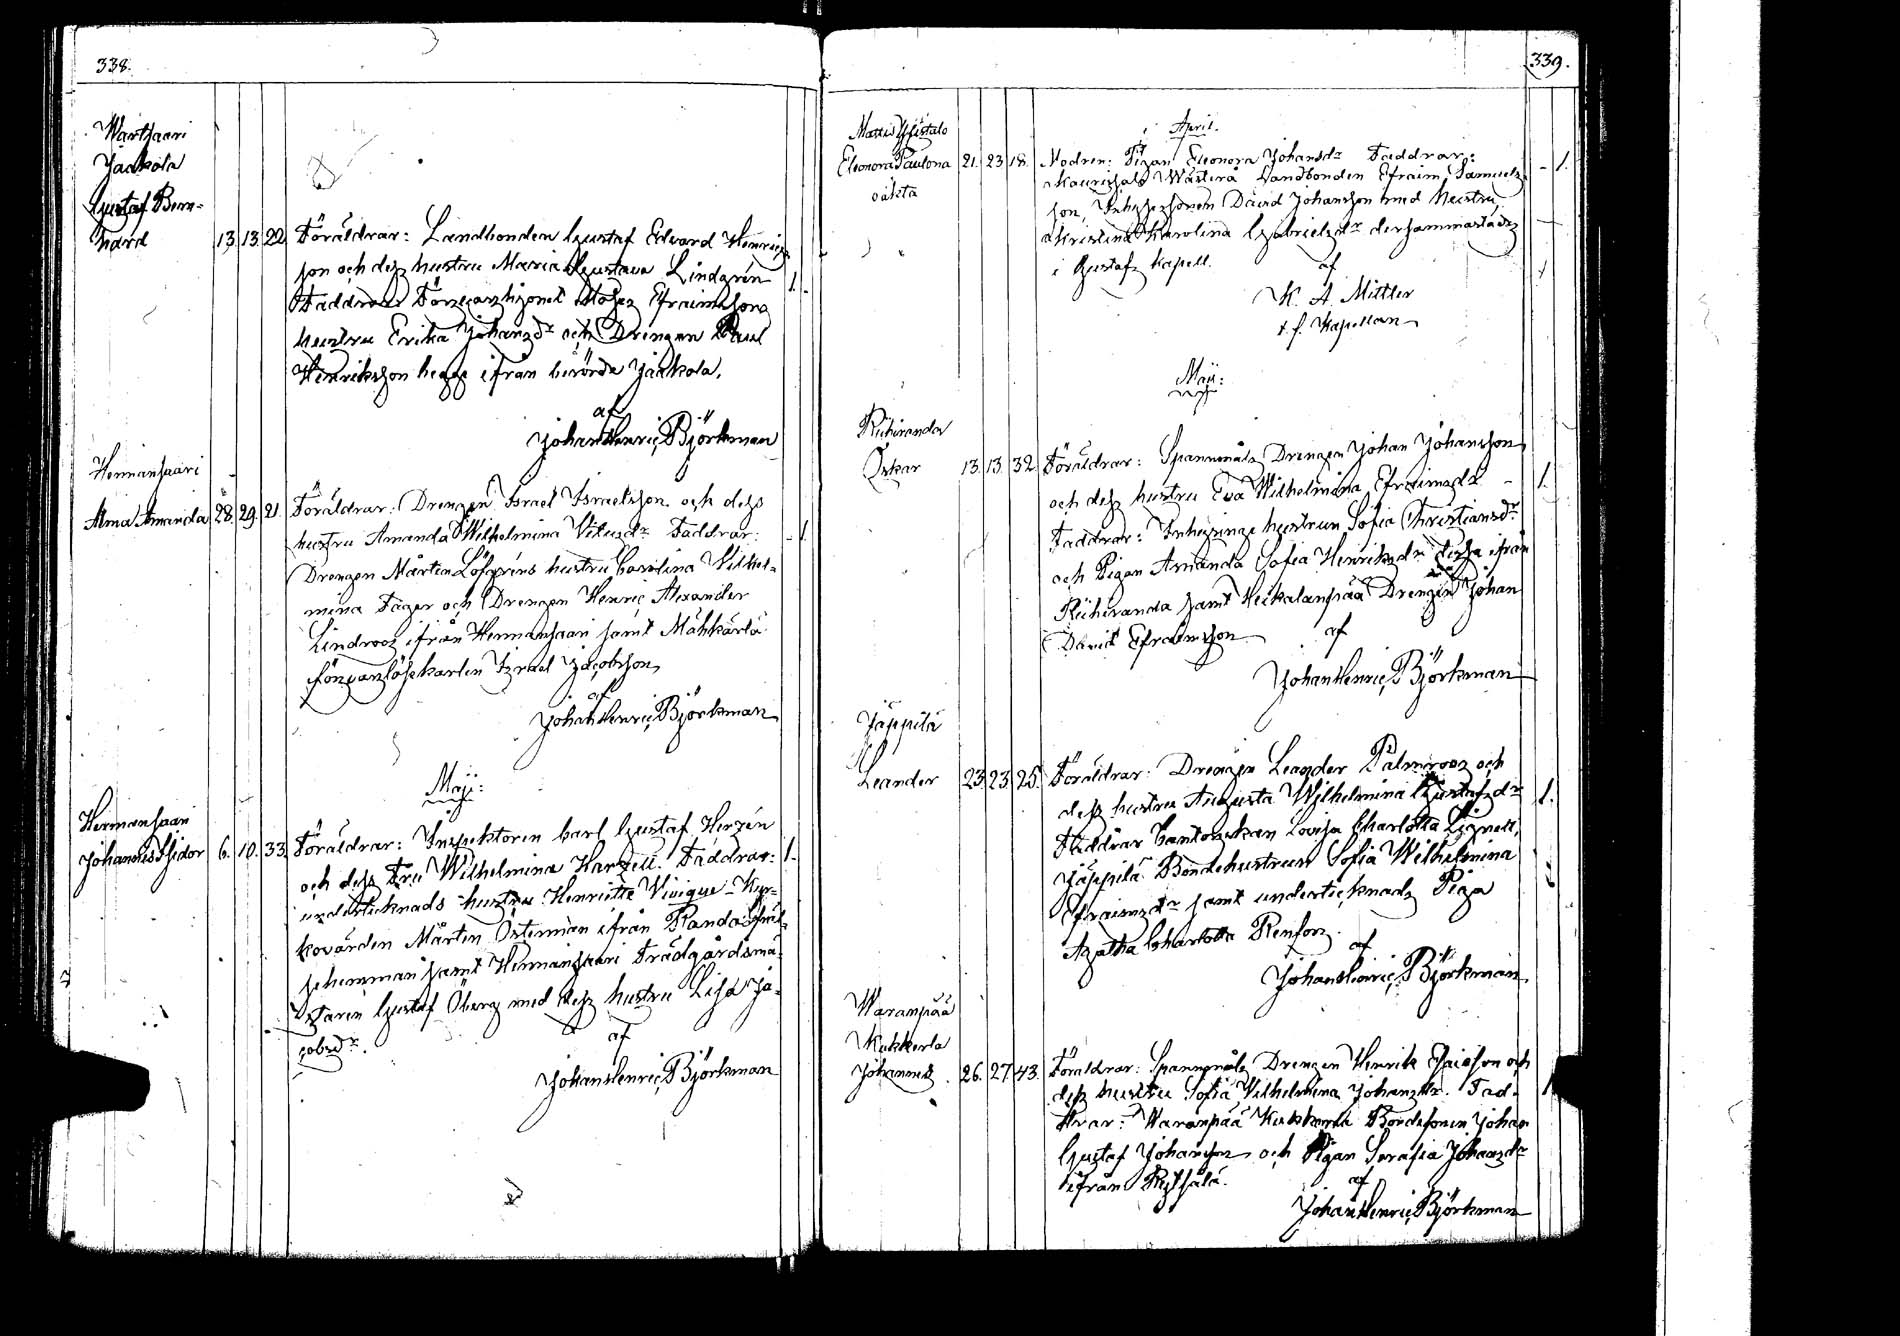 338.
Wartsaari
Jaakola
Gustaf Bern-
hard 13. 13. 22. Föräldrar: Landbonden Gustaf Edvard Henrics-
son och dess hustru Maria Gustava Lindgrén 1.
Faddrar: Moses Efraimsons
hustru Erika Johansdr och Drengen Paul
Henriksson begge ifrån berörde Jaakola.
af
Johan Henric Björkman
Hermansaari
Alma Amanda 28. 29. 21. Föräldrar: Drengen Israel Israelsson och dess
hustru Amanda Wilhelmina Faddrar: 1.
Drengen Mårten Löfgréns hustru Carolina Vilhel-
mina Fager och Drengen Henric Alexander
Lindroos ifrån Hermansaari samt Mähkärlä
Israel Jacobsson
af
Johan Henric Björkman
Maji:
Hermansaari
Johannes Isidor 6. 10. 33. Föräldrar: Inspektoren Carl Gustaf Herzén 1.
och dess Fru Wilhelmina Harzell. Faddrar:
undertecknads hustru Henriette Kyr-
kovärden Mårten Österman ifrån Randa
hemman samt Hermansaari Trädgårdsmä-
staren Gustaf Öberg med dess hustru Lisa Ja-
cobsdr.
af
Johan Henric Björkman
339.
April.
Eleonora Paulona 21. 23. 18. Modren: Pigan Eleonora Johansdr Faddrar: 1.
oäkta Landbonden Efraim Samuels-
son, David Johansson med hustru
Kristina Karolina Gabrielsdr dersammastädes
i Gustafs Kapell.
af
K. A. Mittler
t. f. Kapellan
Maji:
Riihiranda
Oskar 13. 13. 32. Föräldrar: Spannmåls Drengen Johan Johansson
och dess hustru Eva Wilhelmina Efraimsdr 1.
Faddrar: Inhysinge hustrun Sofia Christiansdr
och Pigan Amanda Sofia Henriksdr dessa ifrån
Riihiranda samt Heikalanpää Drengen Johan
David Efraimsson
af
Johan Henric Björkman
Jäppilä
Leander 23. 23. 25. Föräldrar: Drengen Leander Palmroos och
dess hustru Augusta Wilhelmina Gustafsdr 1.
Faddrar Cantorskan Lovisa Charlotta Lignell,
Jäppilä Bondehustrun Sofia Wilhelmina
Efraimsdr samt undertecknads Piga
Agatha Charlotta Renfors.
af
Johan Henric Björkman
Waranpää
Kukkerla
Johannes 26. 27. 43. Föräldrar: Spannmåls Drengen Henrik Esaisson och
dess hustru Sofia Wilhelmina Johansdr. Fad-
drar: Waranpää Kukkerla Bondesonen Johan
Gustaf Johansson och Pigan Serafia Johansdr
ifrån
af
Johan Henric Björkman